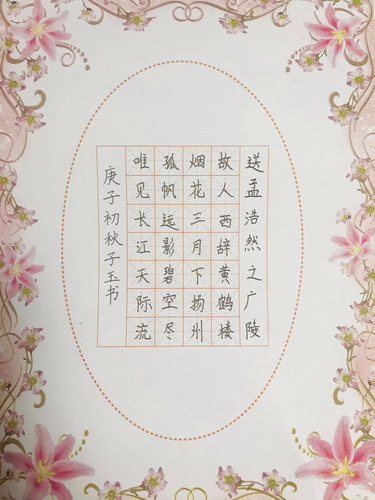 送孟浩然之广陵
故人西辞黄鹤楼
烟花三月下扬州
孤帆远影碧空尽
唯见长江天际流
庚子初秋子玉书